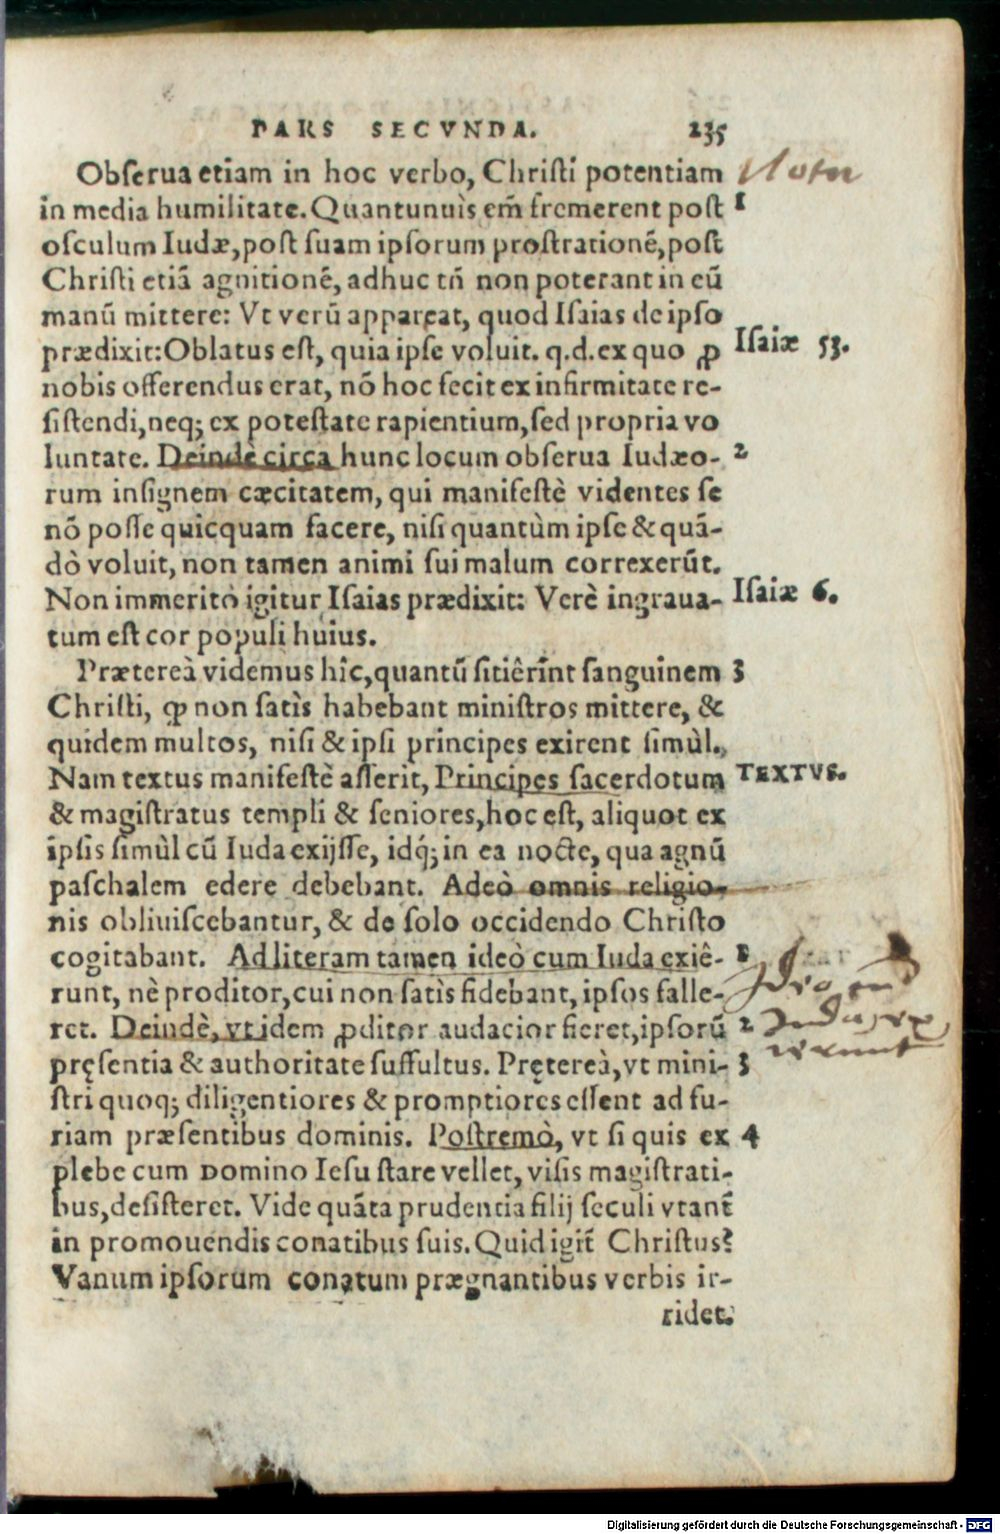 PARS SECVNDA. 235
Obserua etiam in hoc verbo, Christi potentiam
in media humilitate. Quantunuis em̃ fremerent post 1
osculum Iudæ, post suam ipsorum prostrationẽ, post
Christi etiã agnitionẽ, adhuc tñ non poterant in eũ
manũ mittere: Vt verũ appareat, quod Isaias de ipso
prædixit: Oblatus est, quia ipse voluit. q.d. ex quo ꝓ Isaiæ 53.
nobis offerendus erat, nõ hoc fecit ex infirmitate re-
sistendi, neq; ex potestate rapientium, sed propria vo
luntate. Deindè circa hunc locum obserua Iudæo- 2
rum insignem cæcitatem, qui manifestè videntes se
nõ posse quicquam facere, nisi quantùm ipse & quã-
dò voluit, non tamen animi sui malum correxerũt.
Non immeritò igitur Isaias prædixit: Verè ingraua- Isaiæ 6.
tum est cor populi huius.
Prætereà videmus hîc, quantũ sitiêrint sanguinem 3
Christi, ꝙ non satìs habebant ministros mittere, &
quidem multos, nisi & ipsi principes exirent simùl.
Nam textus manifestè asserit, Principes sacerdotum TEXTVS.
& magistratus templi & seniores, hoc est, aliquot ex
ipsis simùl cũ Iuda exijsse, idq́; in ea nocte, qua agnũ
paschalem edere debebant. Adeò omnis religio-
nis obliuiscebantur, & de solo occidendo Christo
cogitabant. Ad literam tamen ideò cum Iuda exiê- 1
runt, nè proditor, cui non satìs fidebant, ipsos falle-
ret. Deindè, vt idem ꝓditor audacior fieret, ipsorũ 2
pręsentia & authoritate suffultus. Pręтereà, vt mini- 3
stri quoq; diligentiores & promptiores essent ad fu-
riam præsentibus dominis. Postremò, vt si quis ex 4
plebe cum DOMINO Iesu stare vellet, visis magistrati-
bus, desisteret. Vide quãta prudentia filij seculi vtant̃
in promouendis conatibus suis. Quid igit̃ Christus?
Vanum ipsorum conatum prægnantibus verbis ir-
ridet.
Digitalisierung gefördert durch die Deutsche Forschungsgemeinschaft - DFG